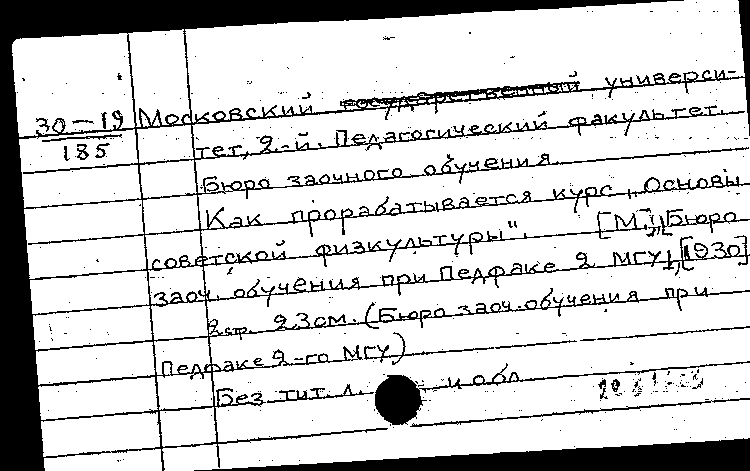 30-19 Московский ~~государственный~~ универси-
185
тет, 2-й. Педагогический факультет.
Бюро заочного обучения
Как прорабатывается курс „Основы
советской физкультуры". [М.], [Бюро
заоч. обучения при Педфаке 2 МГУ], [1930]
2 стр. 23 см. (Бюро заоч. обучения при
Педфаке 2-го МГУ)
Без тит. л. и обл